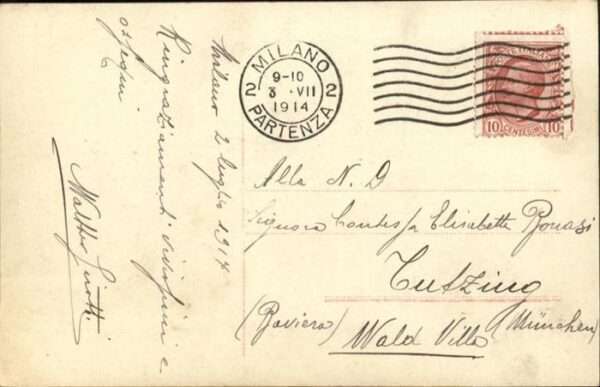 Milano 2 luglio 1914
Ringraziamenti vivissimi e
ossequi
MILANO
9-10
3 · VII
1914
2 2
PARTENZA
10 CENTESIMI 10
Alla N. D
Signora Contessa Elisabetta Bonasi
Tutzing
(Baviera) Wald Villa (München)